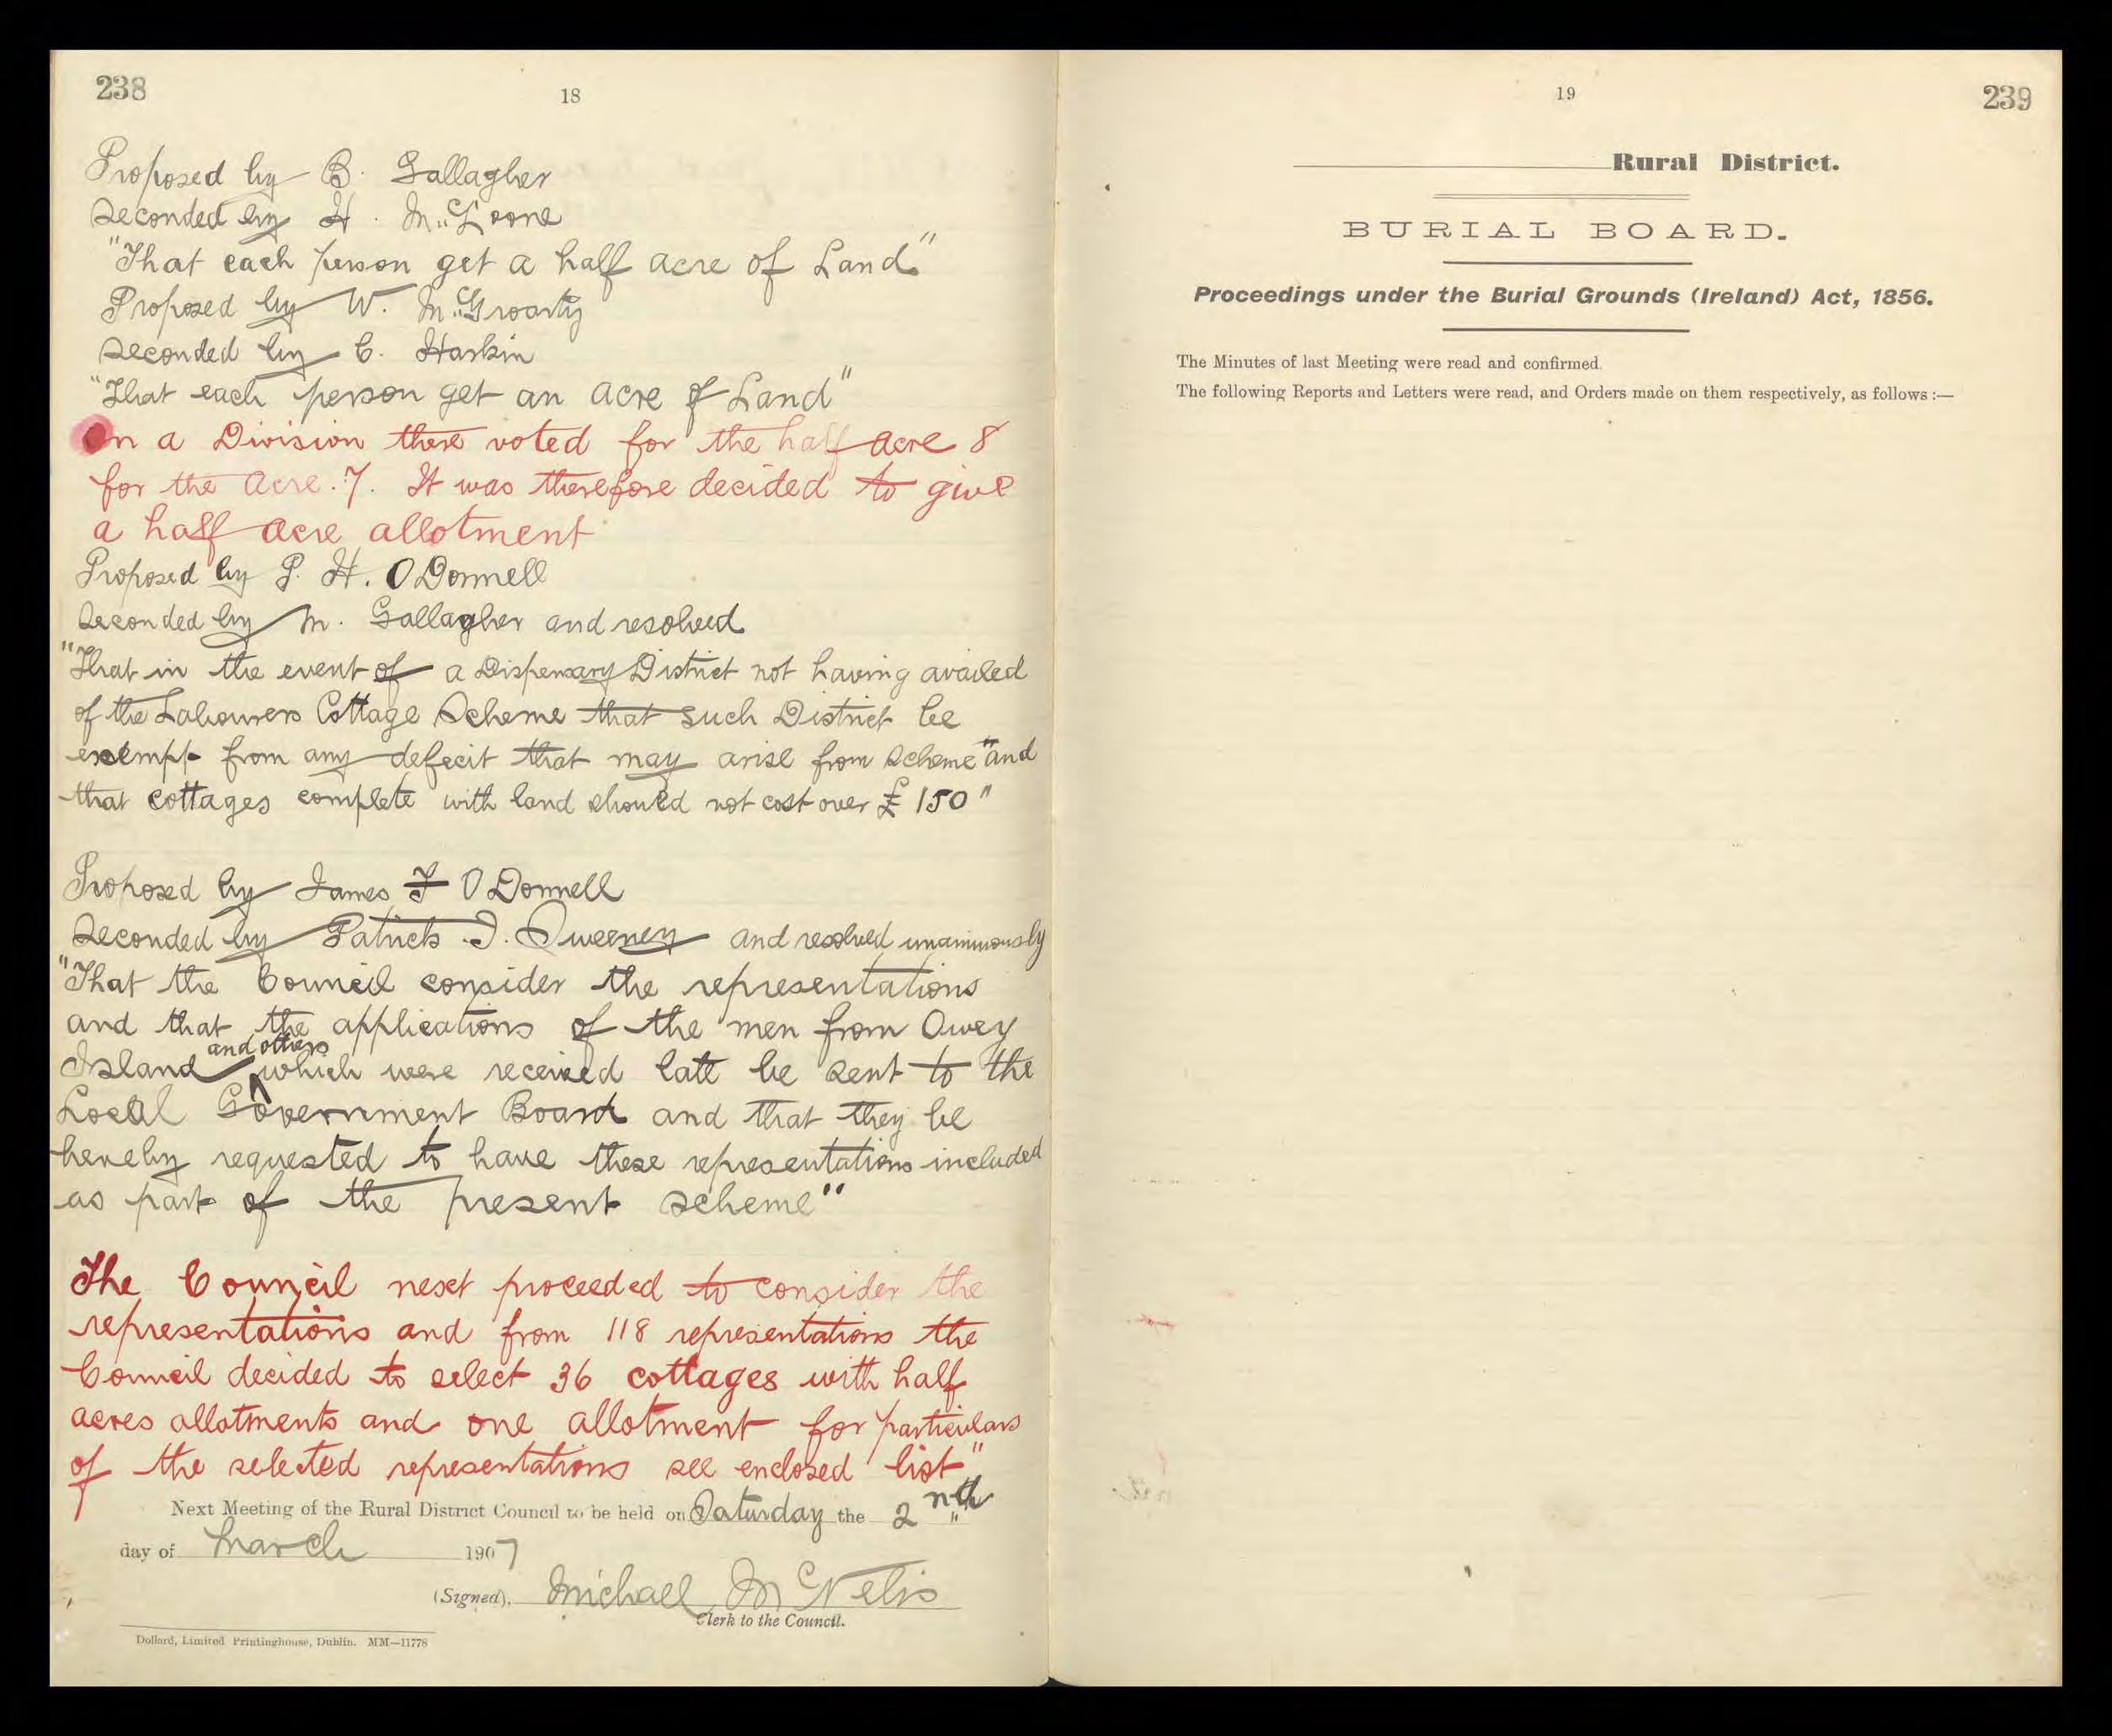 238
18
Proposed by B. Gallagher
Seconded by H. McLoone
"That each person get a half acre of Land"
Proposed by W. McGroarty
Seconded by C. Harkin
"That each person get an acre of Land"
On a Division there voted for the half acre 8
for the acre 7. It was therefore decided to give
a half acre allotment
Proposed by P. H. O Donnell
Seconded by M. Gallagher and resolved
"That in the event of a Dispensary District not having availed
of the Labourers Cottage Scheme that such District be
exempt from any deficit that may arise from Scheme" and
that cottages complete with land should not cost over £150"
Proposed by James F O Donnell
Seconded by Patrick J. Sweeney and resolved unanimously
"That the Council consider the representations
and that the applications of the men from Owey
Island and others which were received late be sent to the
Local Government Board and that they be
hereby requested to have these representations included
as part of the present scheme"
The Council next proceeded to consider the
representations and from 118 representations the
Council decided to select 36 cottages with half
acres allotments and one allotment for particulars
of the selected representations see enclosed list"
Next Meeting of the Rural District Council to be held on Saturday the 2nd
day of March 1907
(Signed), Michael McNelis
Clerk to the Council.
Dollard, Limited Printinghouse, Dublin. MM—11778
19
239
Rural District.
BURIAL BOARD.
Proceedings under the Burial Grounds (Ireland) Act, 1856.
The Minutes of last Meeting were read and confirmed.
The following Reports and Letters were read, and Orders made on them respectively, as follows:—